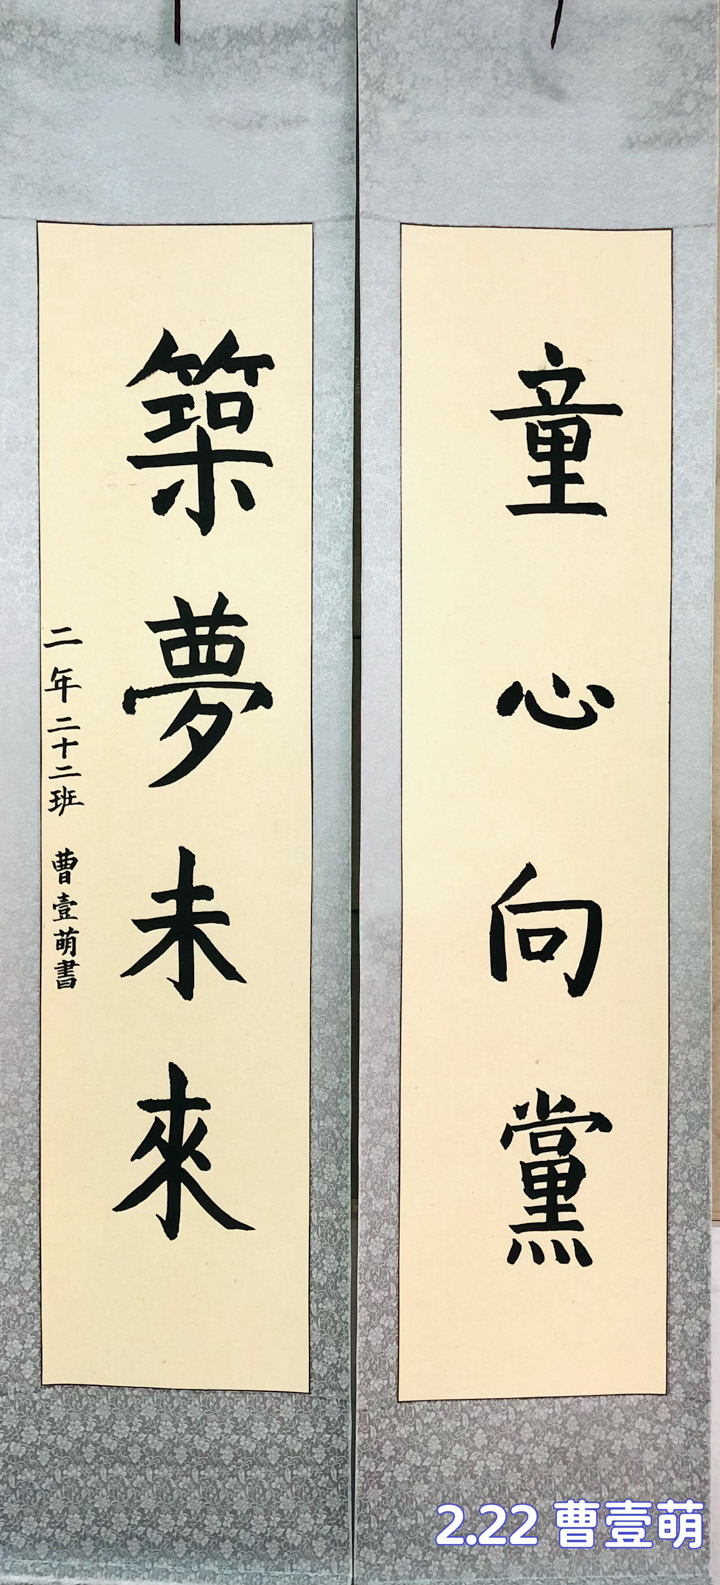 童心向黨
築夢未來
二年二十二班 曹壹萌書
2.22 曹壹萌